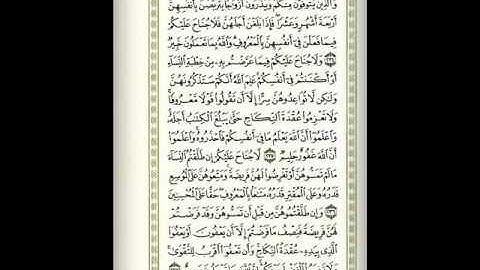 وَالَّذِينَ يُتَوَفَّوْنَ مِنكُمْ وَيَذَرُونَ أَزْوَاجًا يَتَرَبَّصْنَ بِأَنفُسِهِنَّ
أَرْبَعَةَ أَشْهُرٍ وَعَشْرًا فَإِذَا بَلَغْنَ أَجَلَهُنَّ فَلَا جُنَاحَ عَلَيْكُمْ
فِيمَا فَعَلْنَ فِي أَنفُسِهِنَّ بِالْمَعْرُوفِ وَاللَّهُ بِمَا تَعْمَلُونَ خَبِيرٌ
٢٣٤ وَلَا جُنَاحَ عَلَيْكُمْ فِيمَا عَرَّضْتُم بِهِ مِنْ خِطْبَةِ النِّسَاءِ
أَوْ أَكْنَنتُمْ فِي أَنفُسِكُمْ عَلِمَ اللَّهُ أَنَّكُمْ سَتَذْكُرُونَهُنَّ
وَلَٰكِن لَّا تُوَاعِدُوهُنَّ سِرًّا إِلَّا أَن تَقُولُوا قَوْلًا مَّعْرُوفًا
وَلَا تَعْزِمُوا عُقْدَةَ النِّكَاحِ حَتَّىٰ يَبْلُغَ الْكِتَابُ أَجَلَهُ
وَاعْلَمُوا أَنَّ اللَّهَ يَعْلَمُ مَا فِي أَنفُسِكُمْ فَاحْذَرُوهُ وَاعْلَمُوا
أَنَّ اللَّهَ غَفُورٌ حَلِيمٌ ٢٣٥ لَّا جُنَاحَ عَلَيْكُمْ إِن طَلَّقْتُمُ النِّسَاءَ
مَا لَمْ تَمَسُّوهُنَّ أَوْ تَفْرِضُوا لَهُنَّ فَرِيضَةً وَمَتِّعُوهُنَّ عَلَى الْمُوسِعِ
قَدَرُهُ وَعَلَى الْمُقْتِرِ قَدَرُهُ مَتَاعًا بِالْمَعْرُوفِ حَقًّا عَلَى الْمُحْسِنِينَ
٢٣٦ وَإِن طَلَّقْتُمُوهُنَّ مِن قَبْلِ أَن تَمَسُّوهُنَّ وَقَدْ فَرَضْتُمْ
لَهُنَّ فَرِيضَةً فَنِصْفُ مَا فَرَضْتُمْ إِلَّا أَن يَعْفُونَ أَوْ يَعْفُوَا
الَّذِي بِيَدِهِ عُقْدَةُ النِّكَاحِ وَأَن تَعْفُوا أَقْرَبُ لِلتَّقْوَىٰ